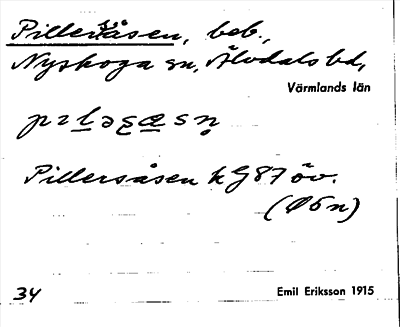 Pillersåsen, beb.,
Nyskoga sn, Älvdals hd,
Värmlands län
Pillersåsen kG87 öv.
(Ø6n)
34
Emil Eriksson 1915